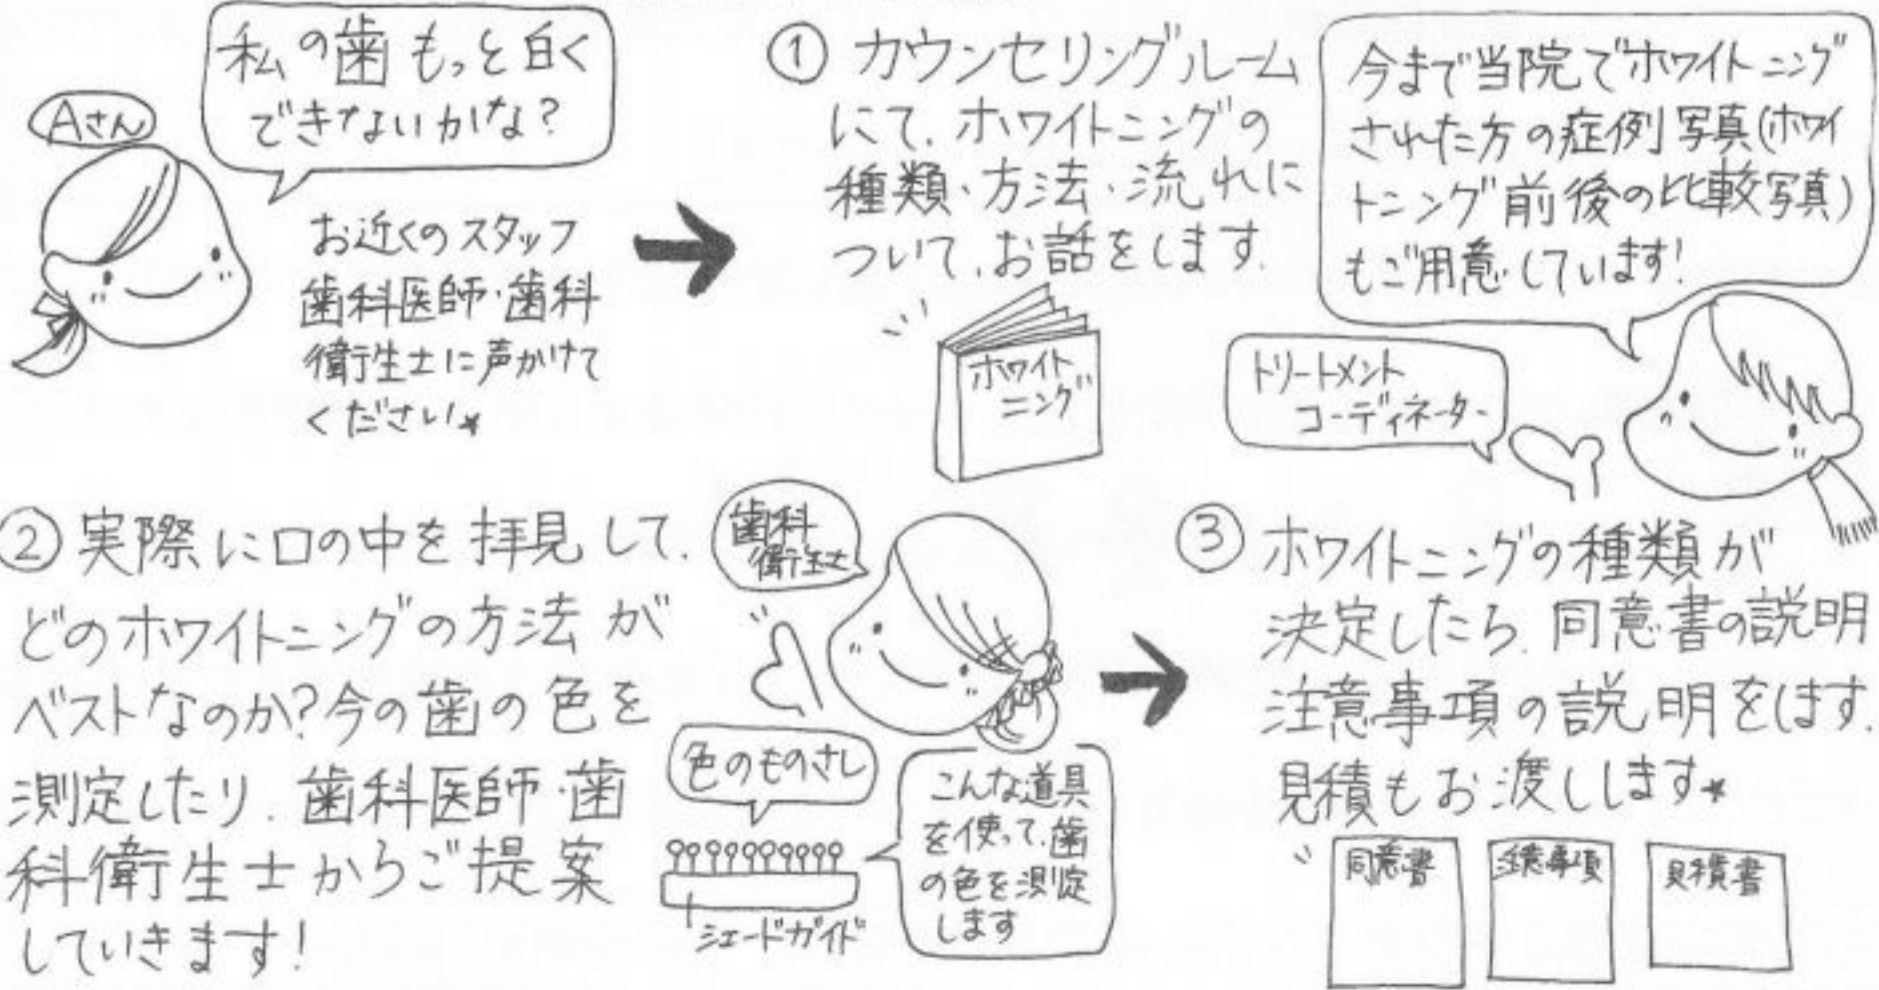 Aさん
私の歯もっと白く
できないかな?
お近くのスタッフ
歯科医師・歯科
衛生士に声かけて
ください★
① カウンセリングルーム
にて、ホワイトニングの
種類・方法・流れに
ついて、お話をします.
ホワイト
ニング
今まで当院でホワイトニング
された方の症例写真(ホワイ
トニング前後の比較写真)
もご用意しています!
トリートメント
コーディネーター
② 実際に口の中を拝見して.
どのホワイトニングの方法が
ベストなのか?今の歯の色を
測定したり.歯科医師・歯
科衛生士からご提案
していきます!
歯科
衛生士
色のものさし
シェードガイド
こんな道具
を使って、歯
の色を測定
します
③ ホワイトニングの種類が
決定したら.同意書の説明
注意事項の説明をします.
見積もお渡しします★
同意書
注意事項
見積書